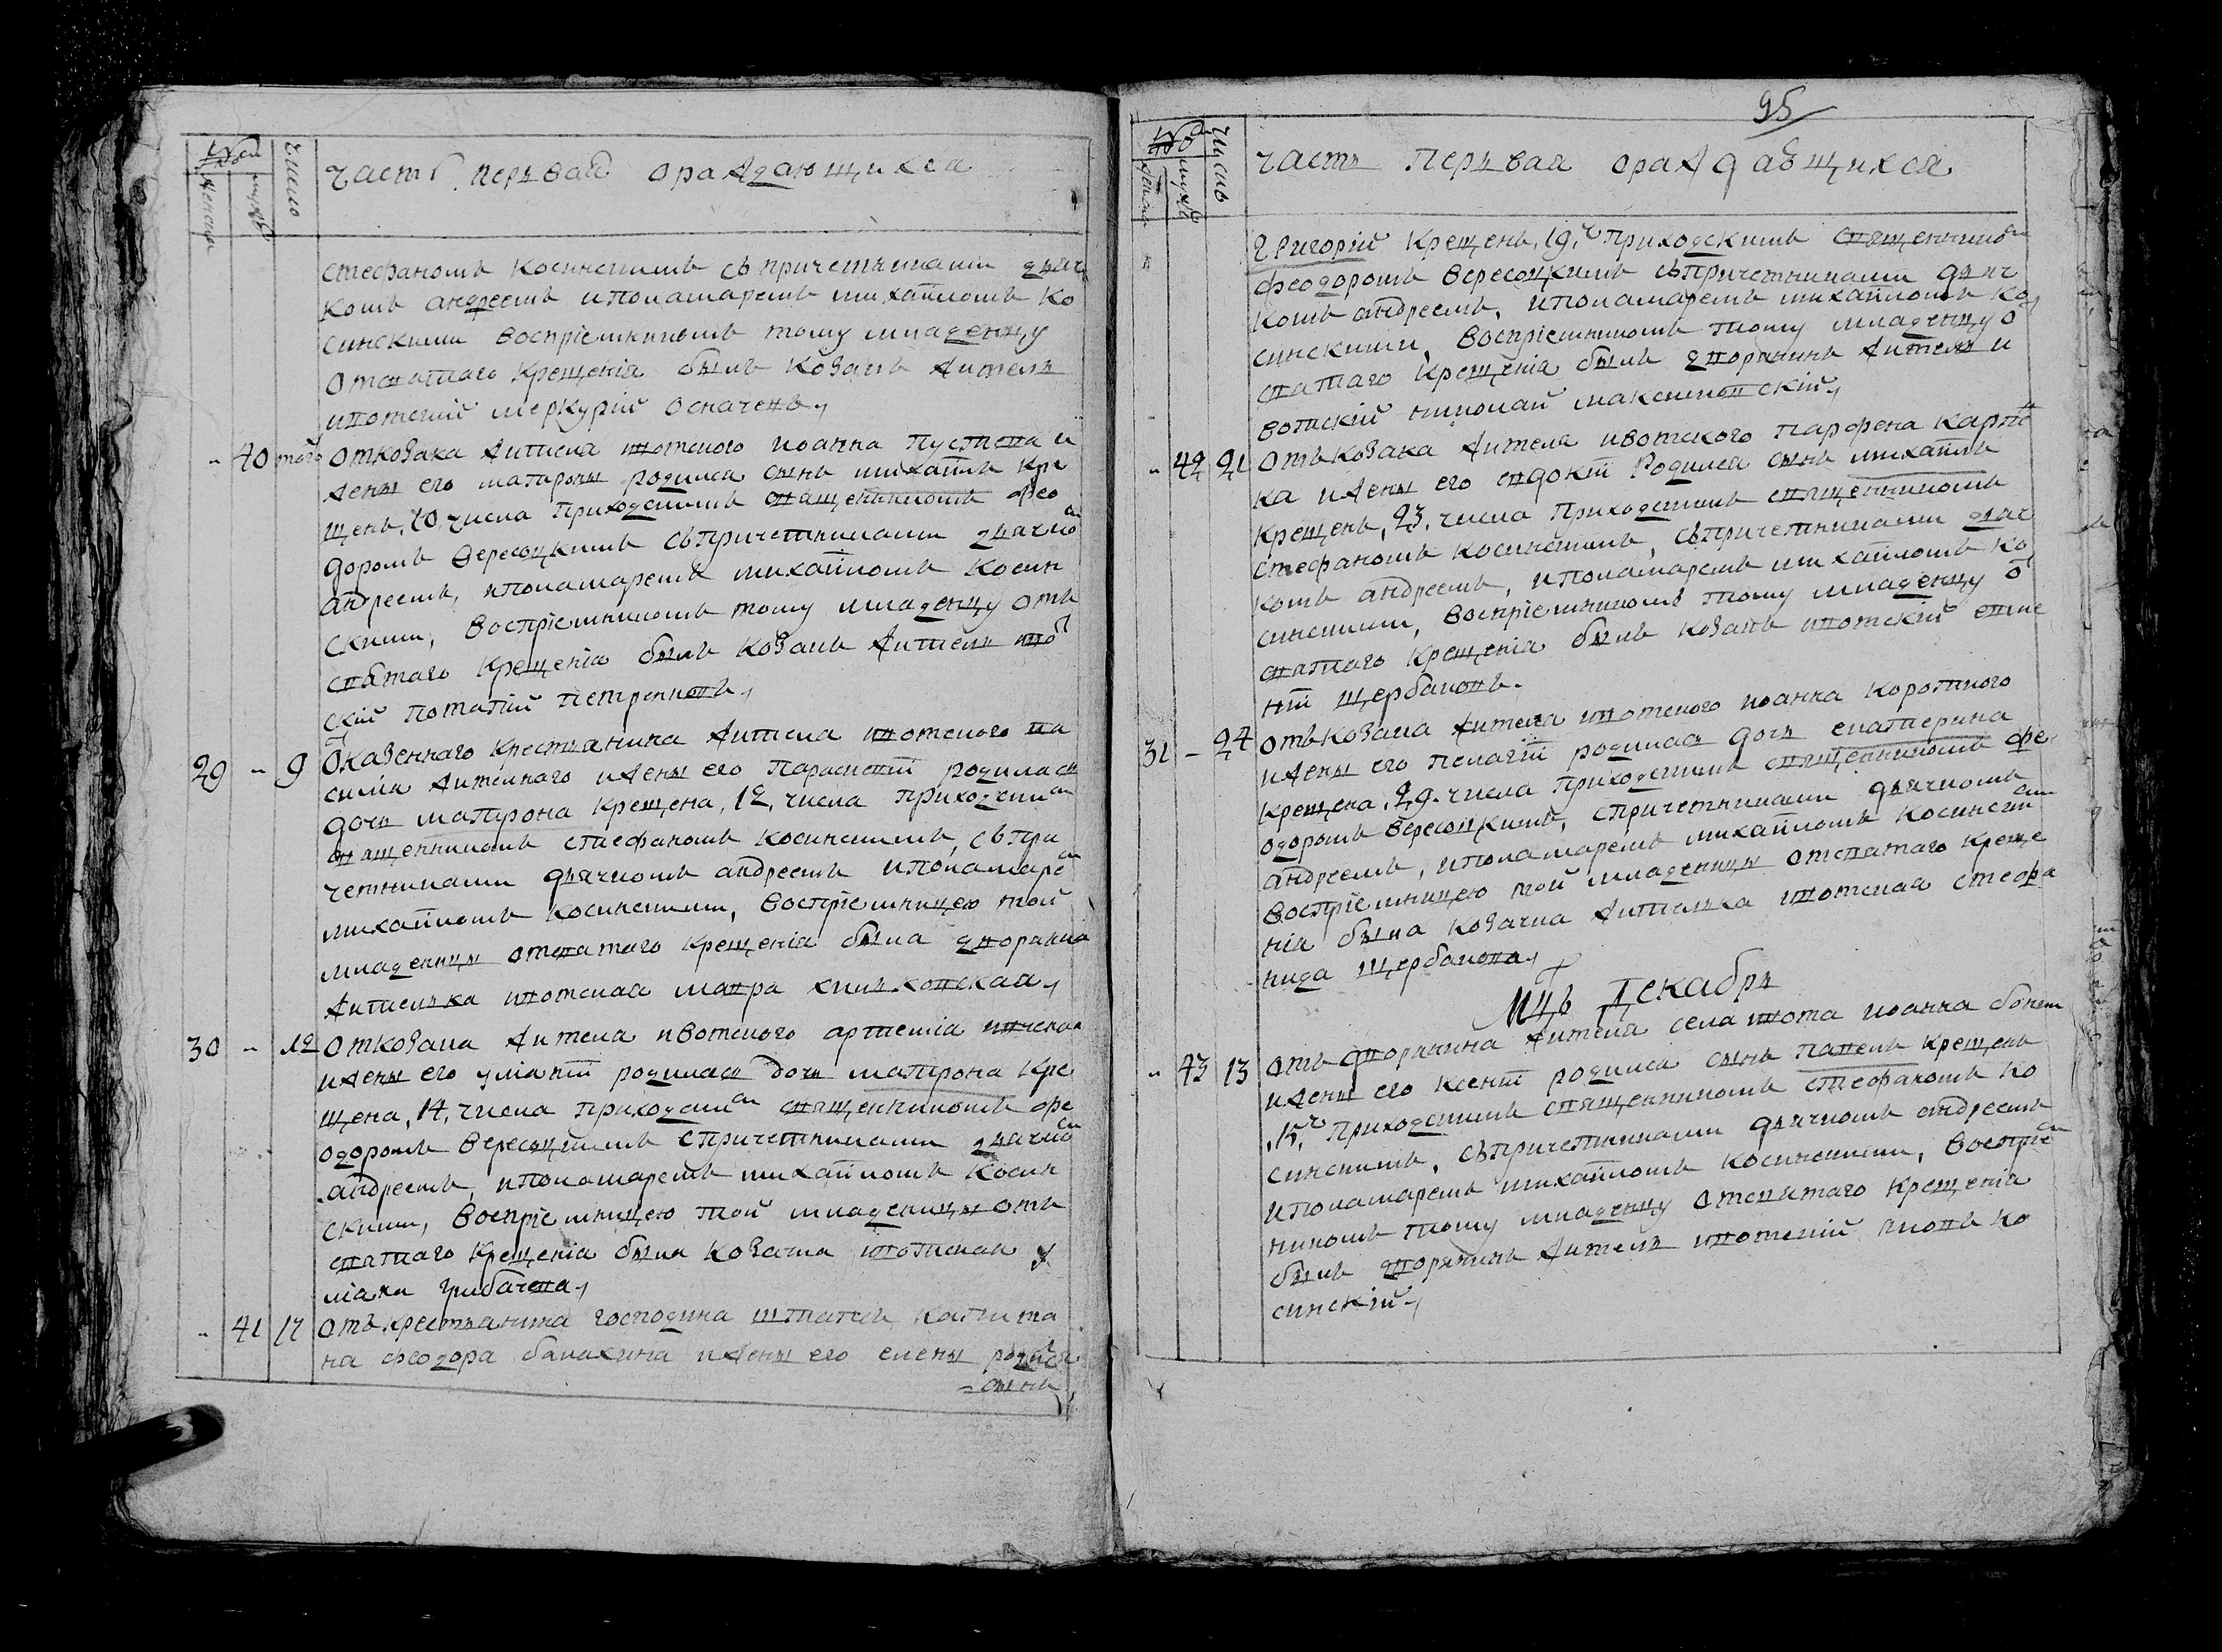 95
Число
часть первая ораждающихся
стефаномъ косинскимъ съ причетниками дьяч
комъ андреемъ ипономаремъ михайломъ ко
синскими восприемникомъ тому младенцу
отсвятаго крещенія былъ козакъ житель
ивотский меркурій осначевъ,
" 40 того откозака жителя ивотского иоанна пустова и
жены его матроны родился сынъ михаилъ кре
щенъ, 10 числа приходскимъ священникомъ фео
доромъ вересоцкимъ съпричетниками дьячко
андреемъ, ипономаремъ михайломъ косин
скими, восприемникомъ тому младенцу отъ
святаго крещенія былъ козакъ житель иво
скій потапій петриковъ,
29 " 9 Оказеннаго крестьянина жителя ивотского ва
силія ижены его параскевіи родилась
дочь матрона крещена, 12, числа приходским
священникомъ стефаномъ косинскимъ, съпри
четниками дьячкомъ андреемъ ипономаре
михайломъ косинскими, восприемницею той
младеницы отсвятаго крещенія была дворянка
жителька ивотская мавра
30 " 12 откозака жителя ивотского артемія
ижены его уліянїи родилась дочь матрона кре
щена, 14, числа приходским священникомъ фе
одоромъ вересоцкимъ спричетниками дьячко
андреемъ, ипономаремъ михайломъ косин
скими, восприемницею той младеницы отъ
святаго крещенія была козачка ивотская у
ліана грибачева,
" 41 17 отъкрестьянина господина штатск капита
на феодора балахина ижены его елены родися
сынъ
Число
часть первая ораждающихся
григорій крещенъ, 19,ч приходскимъ священнико
феодоромъ вересоцкимъ съпричетниками дьяч
комъ андреемъ, ипономаремъ михайломъ ко
синскими, восприемникомъ тому младенцу о
святаго крещенія былъ дворянинъ житель и
вотскій николай максимовскій,
" 42 21 отъкозака жителя ивотского парфена карпе
ка ижены его евдокїи родился сынъ михаилъ
крещенъ, 23, числа приходскимъ священникомъ
стефаномъ косинскимъ, съпричетниками дьяч
комъ андреемъ, ипономаремъ михайломъ ко
синскими, восприемникомъ тому младенцу о
святаго крещенія былъ козакъ ивотскій
щербаковъ.
31 " 24 отъкозака жителя ивотского иоанна короткого
ижены его пелагїи родилась дочь екатерина
крещена, 29. числа приходскимъ священникомъ фе
одоромъ вересоцкимъ, спричетниками дьячкомъ
андреемъ, ипономаремъ михайломъ косинским
восприемницею той младеницы отсвятаго креще
нія была козачка жителька ивотская стефа
нида щербакова,
Мцъ Декабрь
" 43 13 отъ дворянина жителя села ивота иоанна
ижены его ксенїи родился сынъ павелъ крещенъ
,15,ч приходскимъ священникомъ стефаномъ ко
синскимъ, съпричетниками дьячкомъ андреемъ
ипономаремъ михайломъ косинскими, восприем
никомъ тому младенцу отсвятаго крещенія
былъ дворянинъ житель ивотский яковъ ко
синскій,